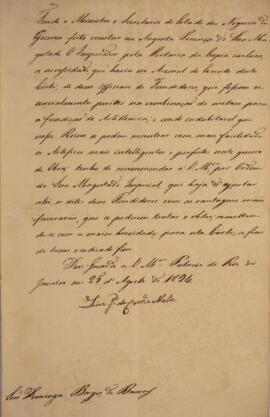 Tendo o Ministro e Secretario de Estado dos Negocios da
Guerra feito constar na Augusta Presença de Sua Ma-
gestade O Imperador pela Portaria da Copia incluza,
a necessidade que havia no Arsenal do Exercito desta
Corte, de dous Officiaes de Fundidores, que fossem es-
sencialmente peritos na combinação de metaes para
a fundição de Artilharia; e sendo indubitavel que
nesse Reino se podem encontrar com mais facilidade
os Artifices mais intelligentes e perfeitos neste genero
de Obra; tenho de recommendar a V. Mce. por Ordem
de Sua Magestade Imperial que haja de ajustar
ahi os ditos dous Fundidores com as vantagens mais
favoraveis, que se poderem tratar e obter, remetten-
do-os com a maior brevidade para esta Corte, a fim
de terem o indicado fim.
Deos Guarde a V. Mce. Palacio do Rio de
Janeiro em 28 d'Agosto de 1824.
Luiz Je. de Carvo. e Mello
Snr. Domingos Borges de Barros